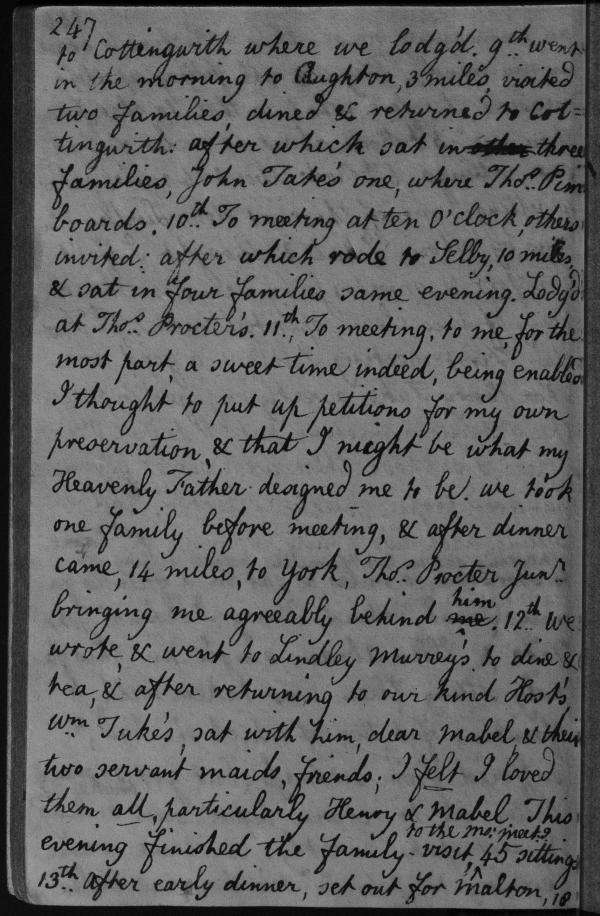 247
to Cottingwith where we lodg'd. 9th went
in the morning to Aughton, 3 miles, visited
two families, dined & returned to Cot=
tingwith: after which sat in other three
families, John Tate's one, where Thos. Pim
boards. 10th To meeting at ten O'clock, others
invited: after which rode to Selby, 10 miles,
& sat in four families same evening. Lodg'd
at Thos. Procter's. 11th, To meeting, to me, for the
most part, a sweet time indeed, being enabled
I thought to put up petitions for my own
preservation, & that I might be what my
Heavenly Father designed me to be. we took
one family before meeting, & after dinner
came, 14 miles, to York, Thos. Procter Junr.
bringing me agreeably behind me him. 12th We
wrote, & went to Lindley Murrey's to dine &
tea, & after returning to our kind Host's,
Wm Tuke's, sat with him, dear Mabel, & their
two servant maids, friends; I felt I loved
them all, particularly Henry & Mabel. This
evening finished the family-visit to the mo: meetg, 45 sittings
13th After early dinner, set out for Malton, 18